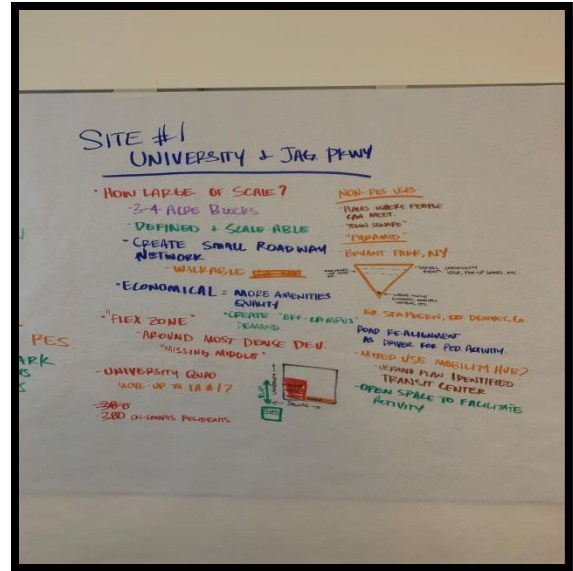 SITE #1
UNIVERSITY + JAG. PKWY
• HOW LARGE OF SCALE?
- 3-4-ACRE BLOCKS
- DEFINED + SCALE-ABLE
- CREATE SMALL ROADWAY
NETWORK
- WALKABLE
• ECONOMICAL = MORE AMENITIES
QUALITY
- CREATE "OFF-CAMPUS"
DEMAND
• "FLEX ZONE"
- AROUND MOST DENSE DEV.
"MISSING MIDDLE"
- UNIVERSITY QUAD
MOVE UP TO
380
380 ON-CAMPUS RESIDENTS
NON-RES USES:
- PLACES WHERE PEOPLE
CAN MEET.
"TOWN SQUARE"
"PYRAMID"
BRYANT PARK, NY
EX. STAPLETON, CO. DENVER, CO.
ROAD RE-ALIGNMENT
AS DRIVER FOR PED. ACTIVITY.
- MIXED USE MOBILITY HUB?
- VERANO PLAN IDENTIFIED
TRANSIT CENTER
- OPEN SPACE TO FACILITATE
ACTIVITY
RES
ARK